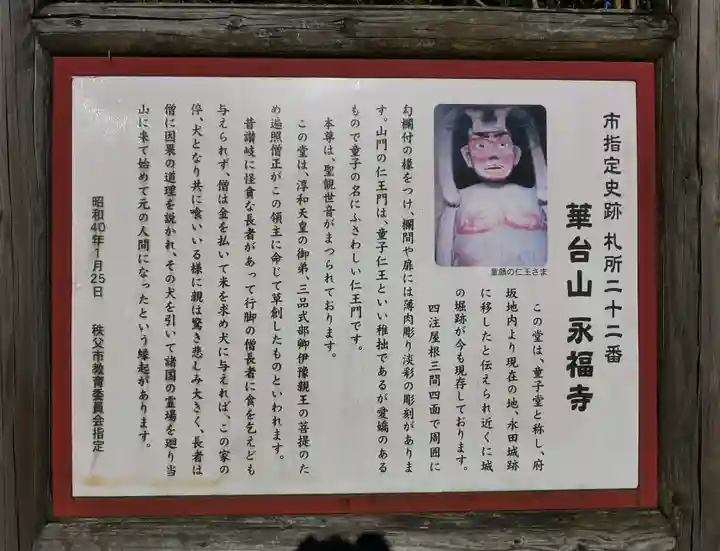 市指定史跡 札所二十二番
華台山 永福寺
この堂は、童子堂と称し、府
坂地内より現在の地、永田城跡
に移したと伝えられ近くに城
の堀跡が今も現存しております。
四注屋根三間四面で周囲に
勾欄付の椽をつけ、欄間や扉には薄肉彫り淡彩の彫刻がありま
す。山門の仁王門は、童子仁王といい稚拙であるが愛嬌のある
もので童子の名にふさわしい仁王門です。
本尊は、聖観世音がまつられております。
この堂は、淳和天皇の御弟、三品式部卿伊豫親王の菩提のた
め遍照僧正がこの領主に命じて草創したものといわれます。
昔讃岐に怪貪な長者があって行脚の僧長者に食を乞えども
与えられず、僧は金を払いて米を求め犬に与えれば、この家の
倅、犬となり共に喰いいる様に親は驚き悲しみ大きく、長者は
僧に因果の道理を説かれ、その犬を引いて諸国の霊場を廻り当
山に来て始めて元の人間になったという縁起があります。
昭和40年1月25日 秩父市教育委員会指定
童顔の仁王さま